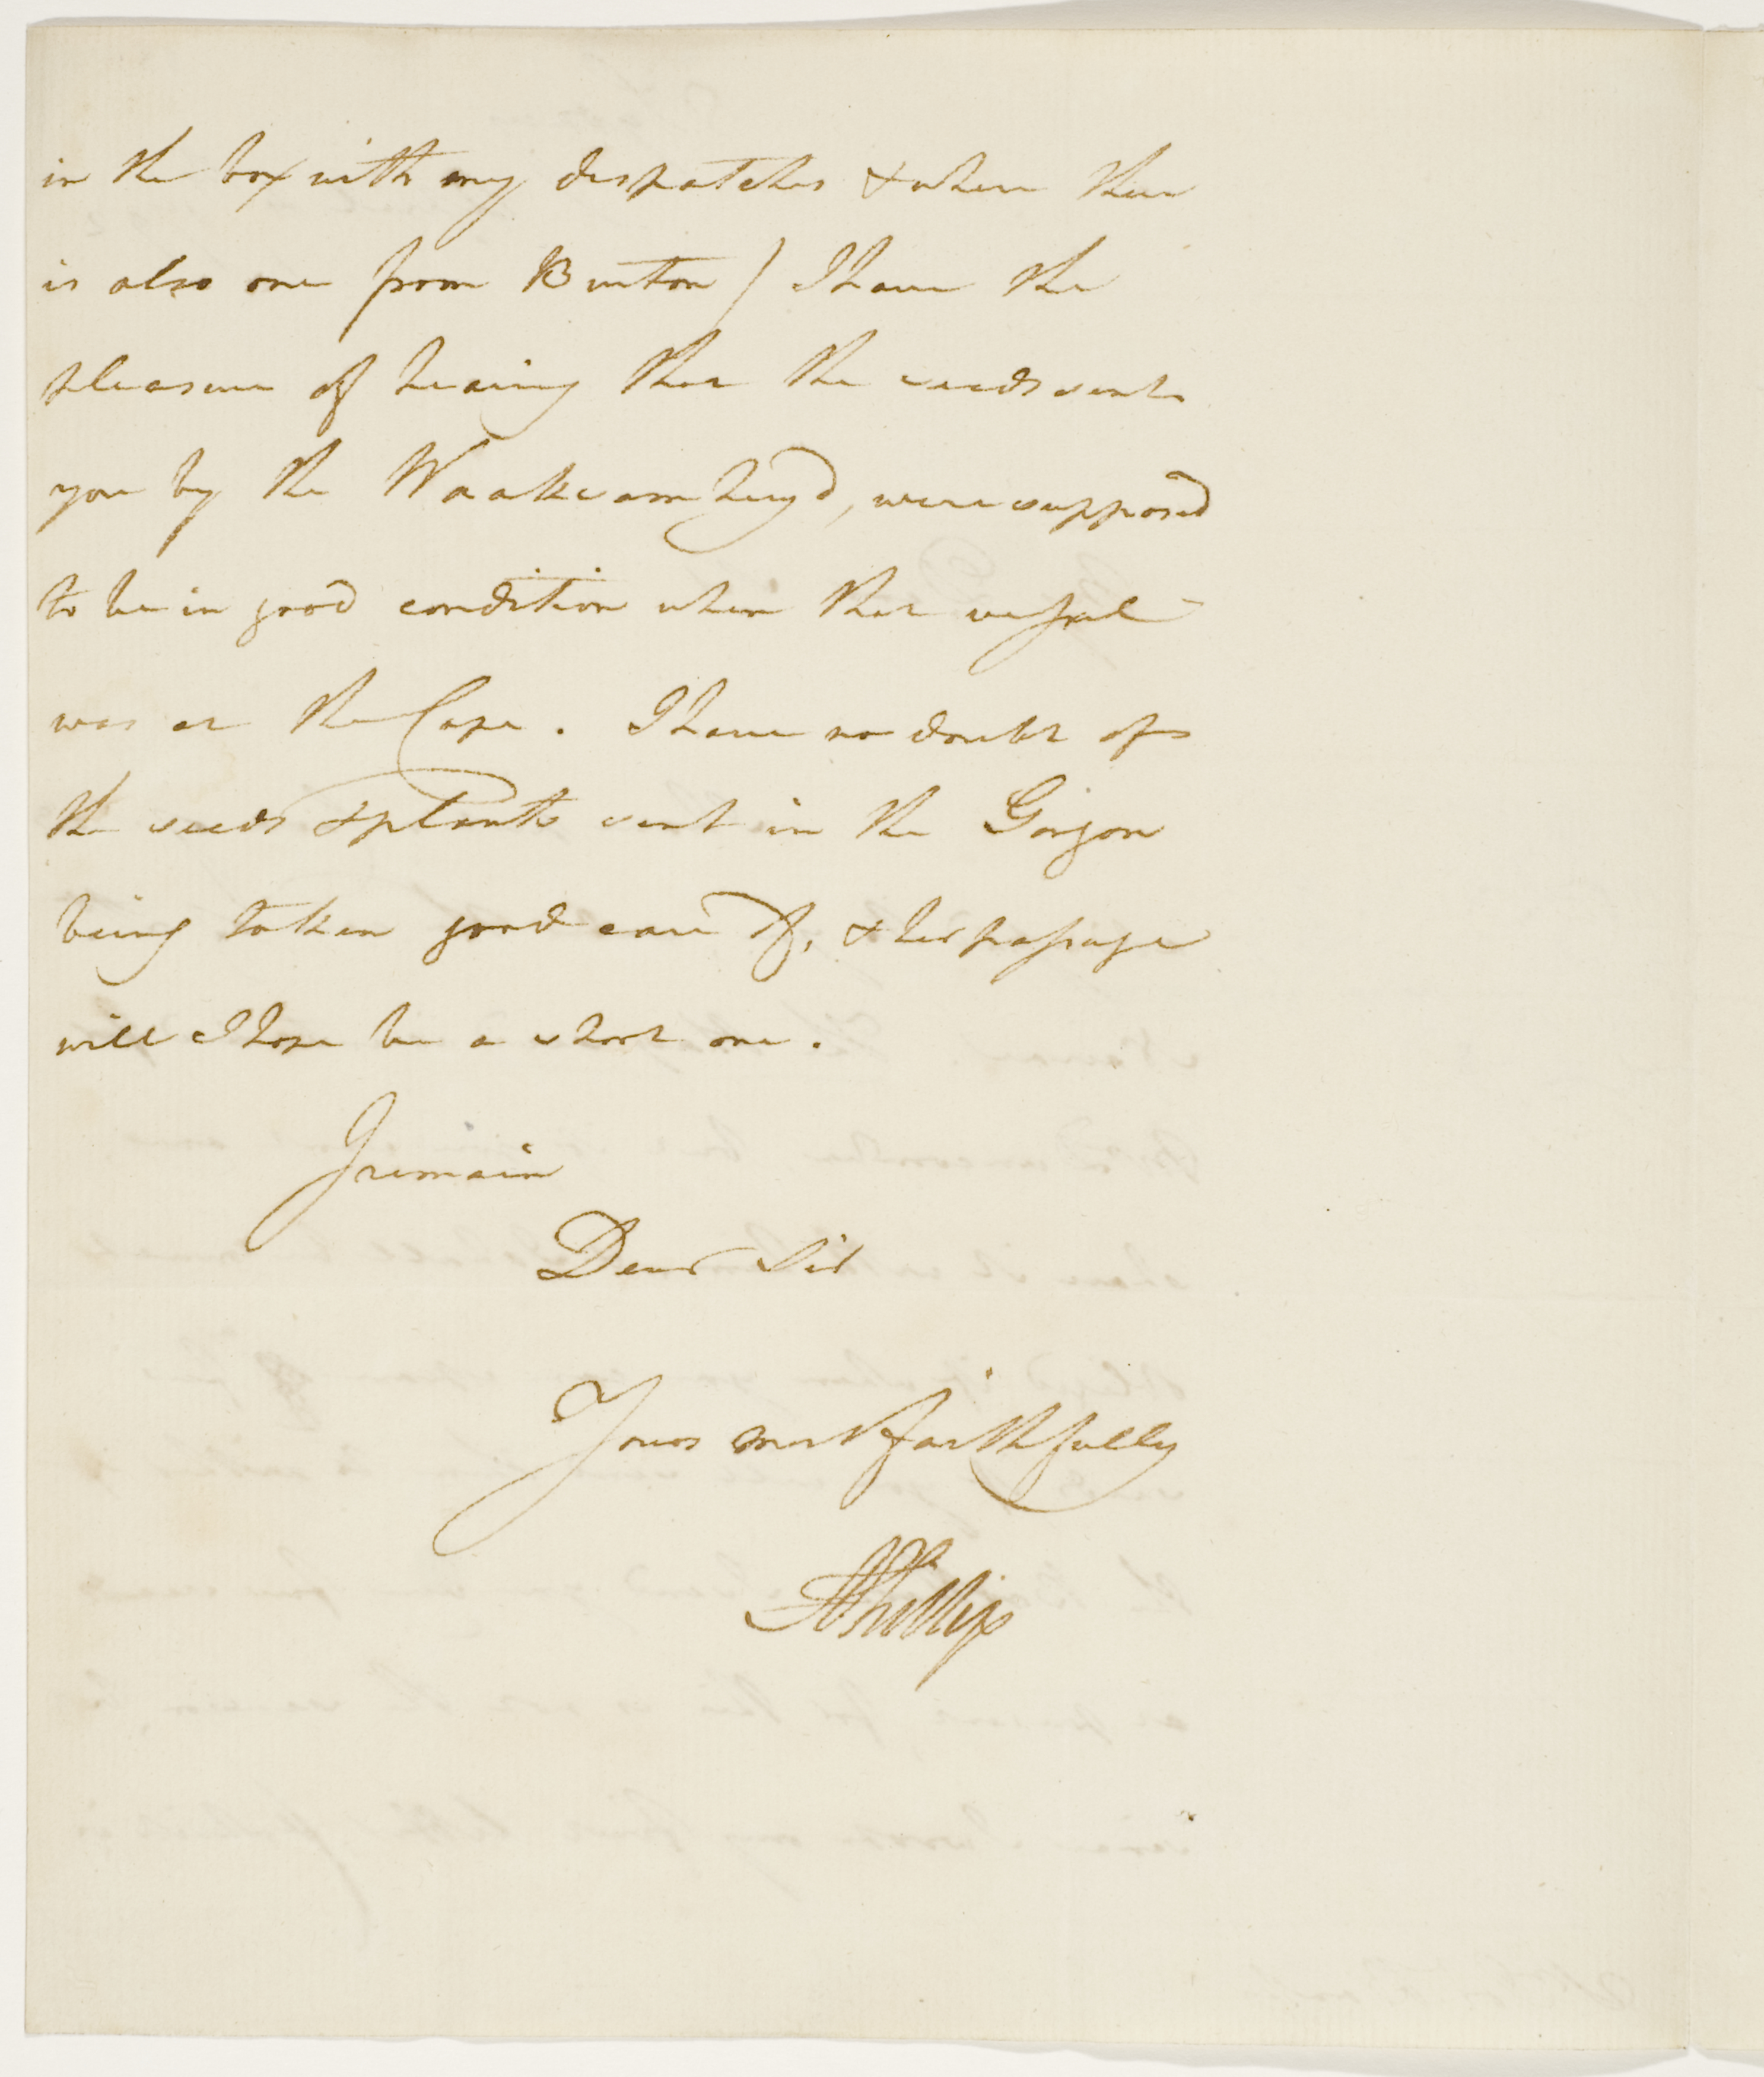 in the box with my despatches & where there
is also one from Burton) I have the
pleasure of hearing that the seeds sent
you by the Waaksamheyd, were supposed
to be in good condition when that vessel
was at the Cape. I have no doubt of
the seeds & plants sent in the Gorgon
being taken good care of, & her passage
will I hope be a short one.
I remain
Dear Sir
Yours most faithfully
A Phillip